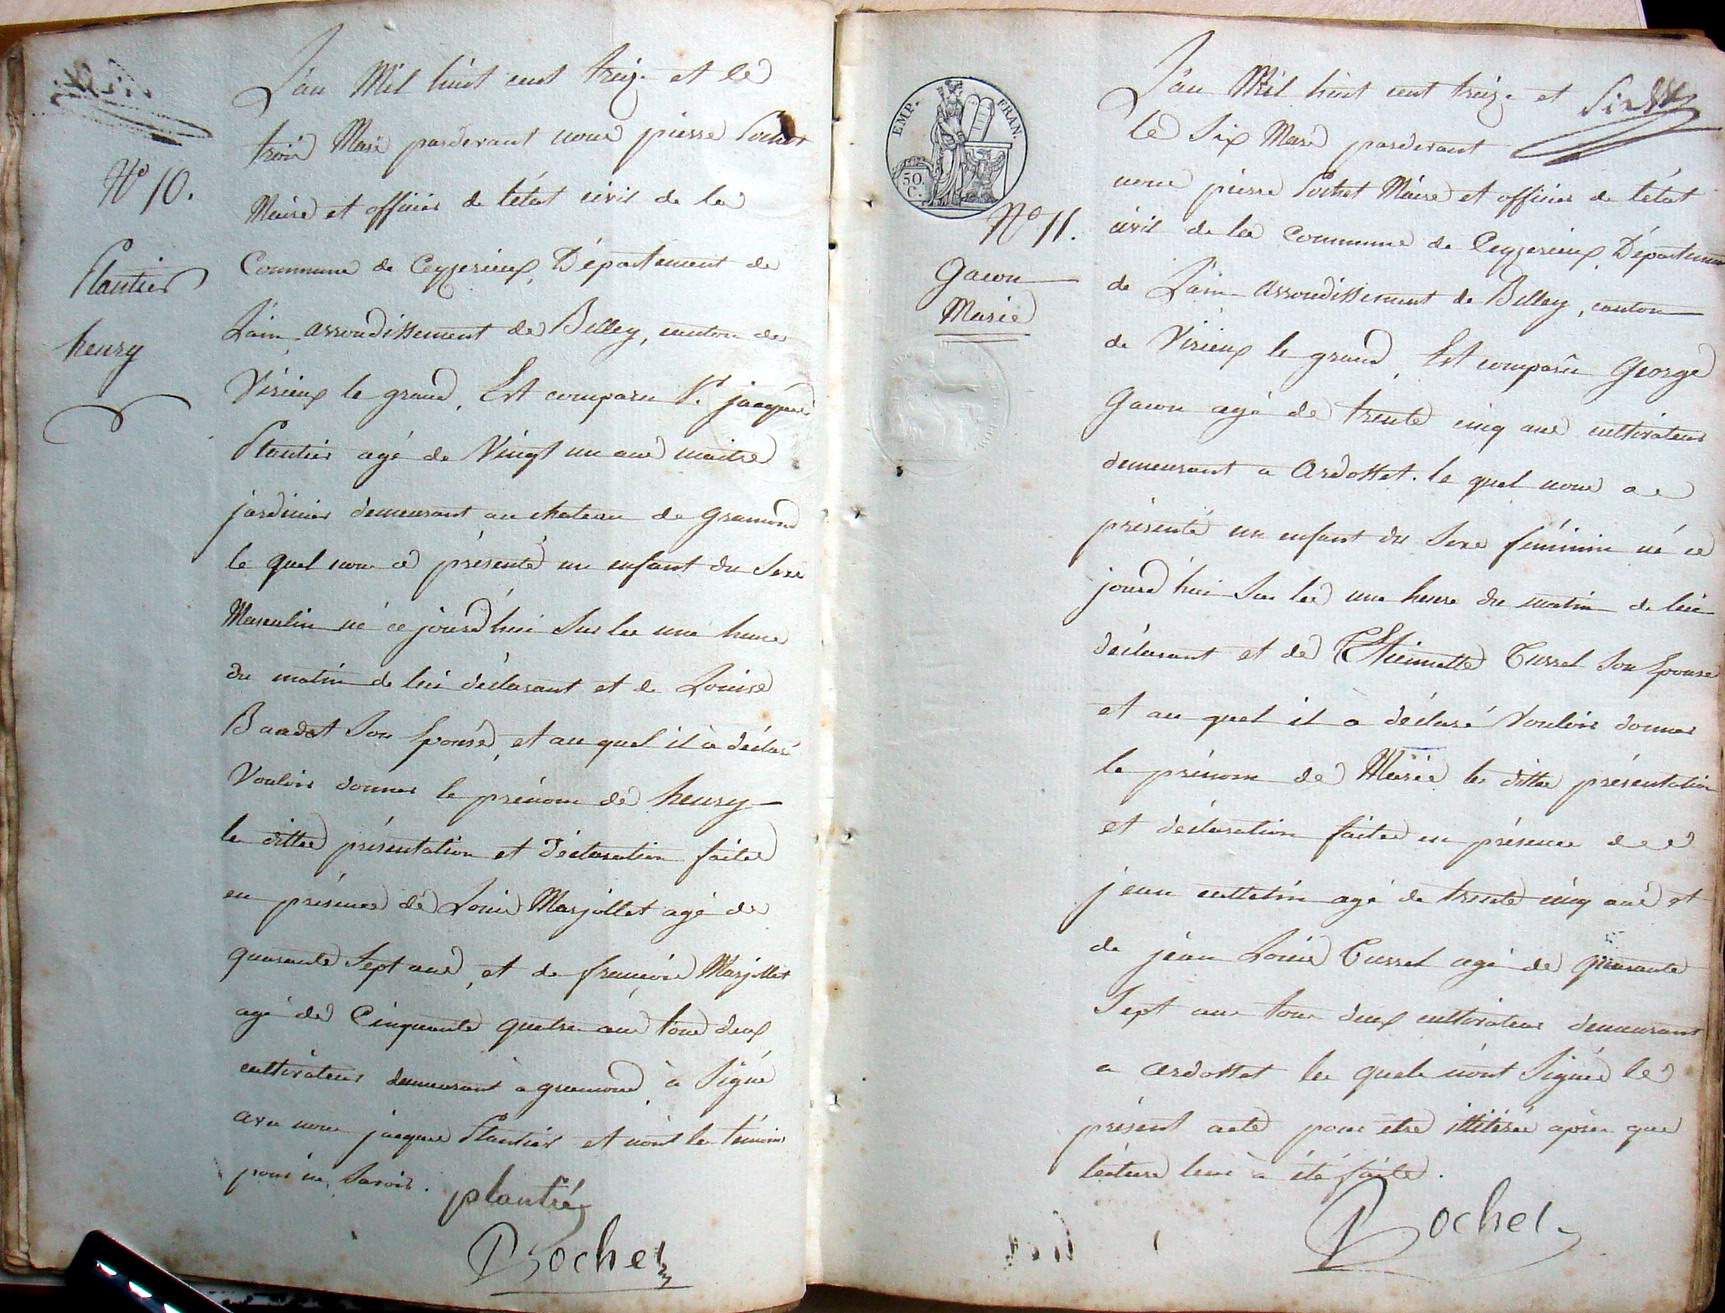 N° 10.
Plantier
henry
L'an Mil huit cent treize et le
trois Mars pardevant nous pierre Pochet
Maire et officier de l'état civil de la
Commune de Ceyzerieux, Département de
L'ain arrondissement de Belley, canton de
Virieux le grand, Est comparu Sr. jacques
Plantier agé de Vingt un ans maitre
jardinier demeurant au chateau de gramond
le quel nous a présenté un enfant du Sexe
Masculin né ce jourd'hui Sur les une heure
du matin de lui déclarant et de Louise
Baudet Son Epouse, et au quel il a déclaré
Vouloir donner le prénom de henry
la ditte présentation et déclaration faite
en présence de Louis Marjollet agé de
quarante Sept ans, et de françois Marjollet
agé de Cinquante quatre ans tous deux
cultivateurs demeurant a gramond, a Signé
avec nous jacques Plantier et non les témoins
pour ne Savoir. plantié
Pochet
EMP. FRAN.
50 C.
N° 11.
Gacon
Marie
L'an Mil huit cent treize et
le Six Mars pardevant
nous pierre Pochet Maire et officier de l'état
civil de la Commune de Ceyzerieux, Département
de L'ain arrondissement de Belley, canton
de Virieux le grand, Est comparu George
Gacon agé de trente cinq ans cultivateur
demeurant a Ardosset. le quel nous a
présenté un enfant du Sexe féminin né ce
jourd'hui Sur les une heure du matin de lui
déclarant et de Etiennette Curset Son Epouse
et au quel il a déclaré Vouloir donner
le prénom de Marie la ditte présentation
et déclaration faite en présence de
jean cattetin agé de trente cinq ans et
de jean Louis Curset agé de quarante
Sept ans tous deux cultivateurs demeurant
a Ardosset les quels n'ont Signé le
présent acte pour etre illitérés après que
lecture leur a été faite.
Pochet